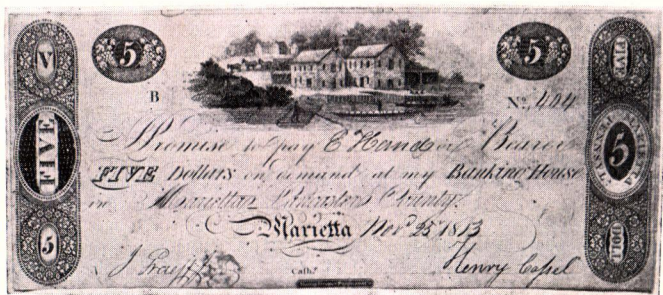 V 5 5 FIVE
B No. 404
I Promise to pay C Hand or Bearer
FIVE Dollars on demand at my Banking House
in Marietta Lancaster County
FIVE 5 MARIETTA
Marietta Nov. 25 1813
5 J Cashr. Henry Cassel DOLL